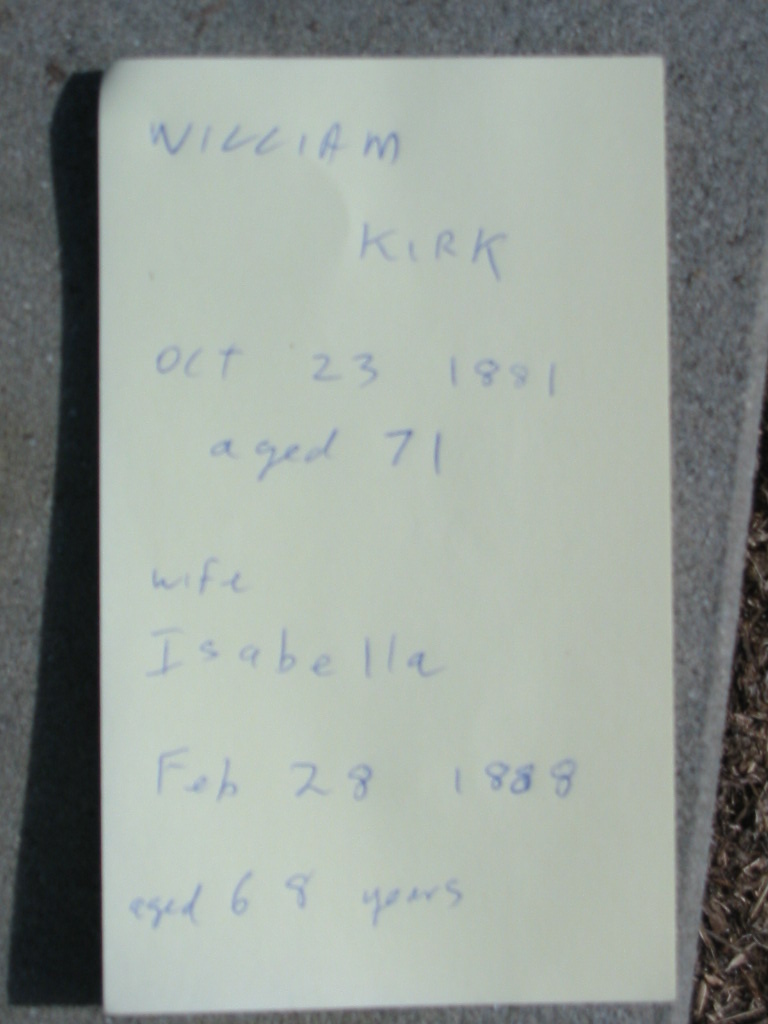 WILLIAM
KIRK
Oct 23 1881
aged 71
wife
Isabella
Feb 28 1888
aged 68 years